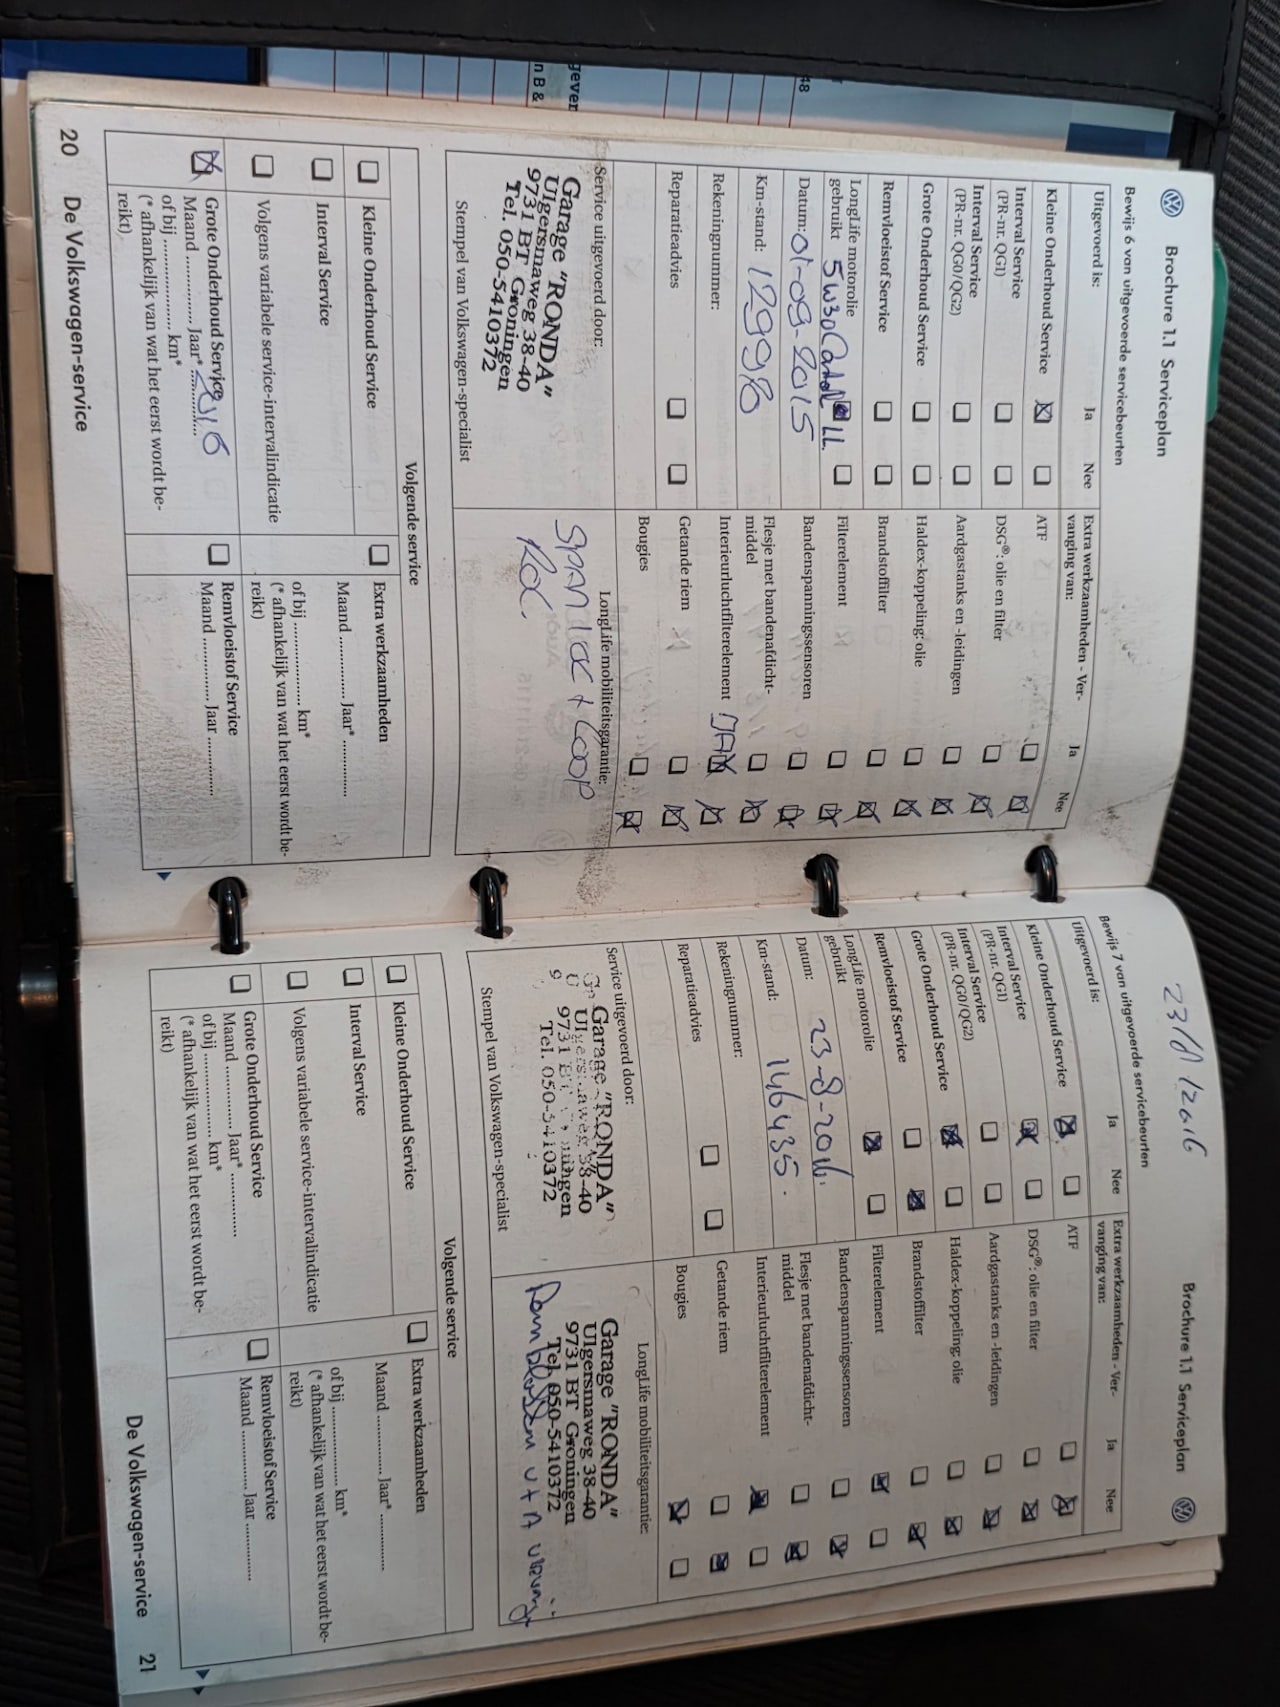 Brochure 1.1 Serviceplan
Bewijs 6 van uitgevoerde servicebeurten
Uitgevoerd is:
Ja
Nee
Kleine Onderhoud Service
Interval Service
(PR-nr. QG1)
Interval Service
(PR-nr. QG0/QG2)
Grote Onderhoud Service
Remvloeistof Service
LongLife motorolie
gebruikt 5W30
Datum: 01-09-2015
Km-stand: 129998
Rekeningnummer:
Reparatieadvies
Extra werkzaamheden - Ver-
vanging van:
Ja
Nee
ATF
DSG®: olie en filter
Aardgastanks en -leidingen
Haldex-koppeling: olie
Brandstoffilter
Filterelement
Bandenspanningssensoren
Flesje met bandenafdicht-
middel
Interieurluchtfilterelement
Getande riem
Bougies
Service uitgevoerd door:
Garage "RONDA"
Ulgersmaweg 38-40
9731 BT Groningen
Tel. 050-5410372
Stempel van Volkswagen-specialist
LongLife mobiliteitsgarantie:
Volgende service
Kleine Onderhoud Service
Interval Service
Volgens variabele service-intervalindicatie
Grote Onderhoud Service
Maand ............ Jaar* 2016
of bij .................... km*
(* afhankelijk van wat het eerst wordt be-
reikt)
Extra werkzaamheden
Maand ............ Jaar* ............
of bij .................... km*
(* afhankelijk van wat het eerst wordt be-
reikt)
Remvloeistof Service
Maand ............ Jaar ............
20 De Volkswagen-service
Brochure 1.1 Serviceplan
Bewijs 7 van uitgevoerde servicebeurten
Uitgevoerd is:
Ja
Nee
Kleine Onderhoud Service
Interval Service
(PR-nr. QG1)
Interval Service
(PR-nr. QG0/QG2)
Grote Onderhoud Service
Remvloeistof Service
LongLife motorolie
gebruikt
Datum: 23-8-2016.
Km-stand: 146435.
Rekeningnummer:
Reparatieadvies
Extra werkzaamheden - Ver-
vanging van:
Ja
Nee
ATF
DSG®: olie en filter
Aardgastanks en -leidingen
Haldex-koppeling: olie
Brandstoffilter
Filterelement
Bandenspanningssensoren
Flesje met bandenafdicht-
middel
Interieurluchtfilterelement
Getande riem
Bougies
Service uitgevoerd door:
Garage "RONDA"
Ulgersmaweg 38-40
9731 BT Groningen
Tel. 050-5410372
Stempel van Volkswagen-specialist
LongLife mobiliteitsgarantie:
Garage "RONDA"
Ulgersmaweg 38-40
9731 BT Groningen
Tel. 050-5410372
Volgende service
Kleine Onderhoud Service
Interval Service
Volgens variabele service-intervalindicatie
Grote Onderhoud Service
Maand ............ Jaar* ............
of bij .................... km*
(* afhankelijk van wat het eerst wordt be-
reikt)
Extra werkzaamheden
Maand ............ Jaar* ............
of bij .................... km*
(* afhankelijk van wat het eerst wordt be-
reikt)
Remvloeistof Service
Maand ............ Jaar ............
De Volkswagen-service 21